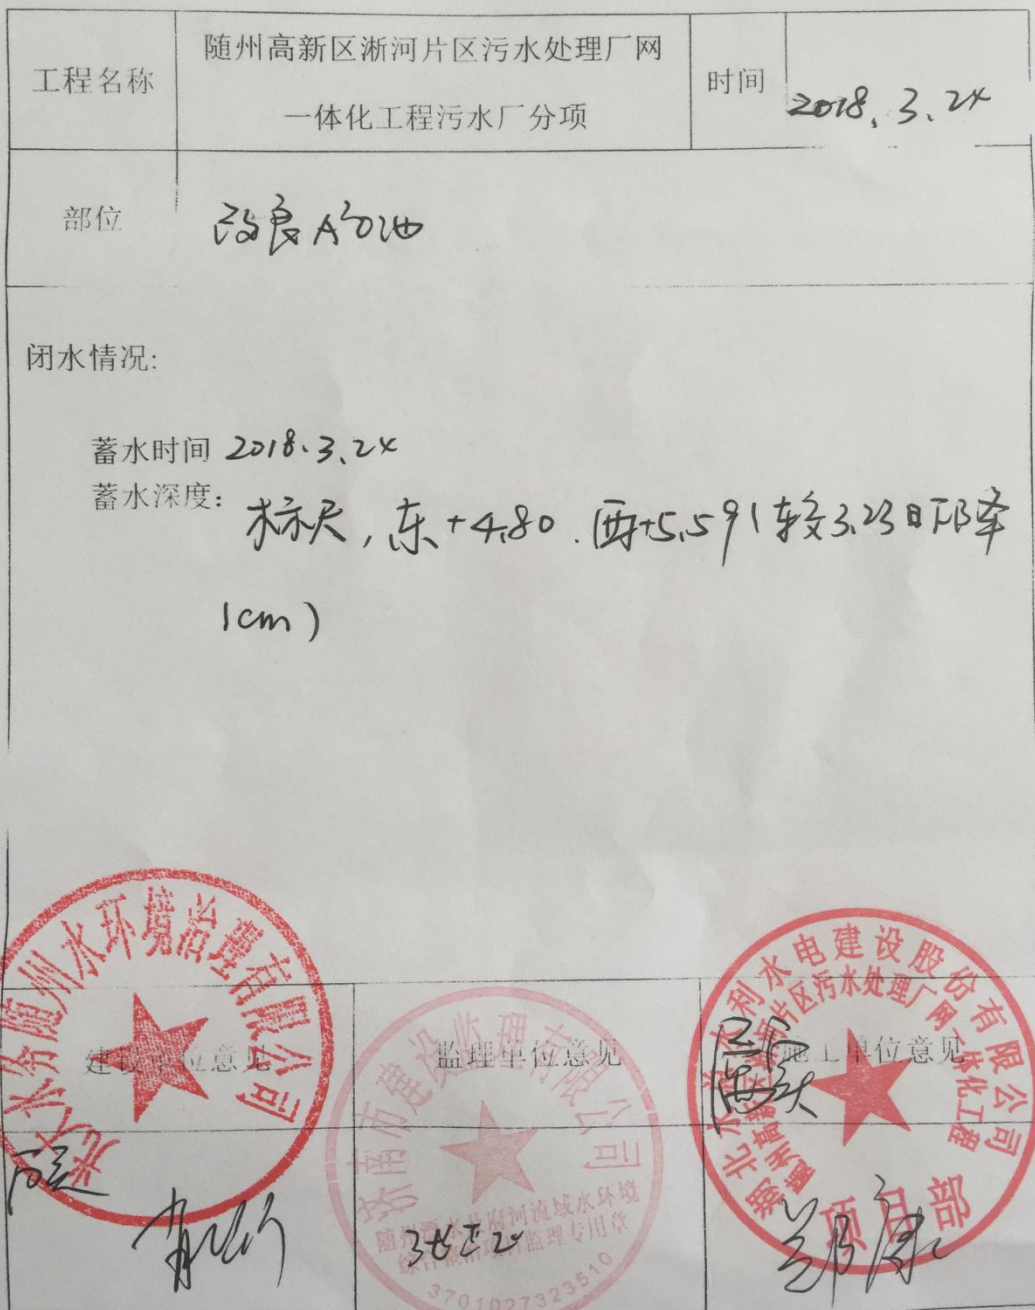 工程名称
随州高新区淅河片区污水处理厂网
一体化工程污水厂分项
时间
2018.3.24
部位
改良A²O池
闭水情况:
蓄水时间 2018.3.24
蓄水深度:
标尺,东+4.80.西+5.59(较3.23日下降
1cm)
建设单位意见
监理单位意见
施工单位意见
光大水务随州水环境治理有限公司
济南市建设监理有限公司
府河流域水环境
监理专用章
3701027323510
湖北水利水电建设股份有限公司
随州高新区淅河片区污水处理厂网一体化工程
项目部